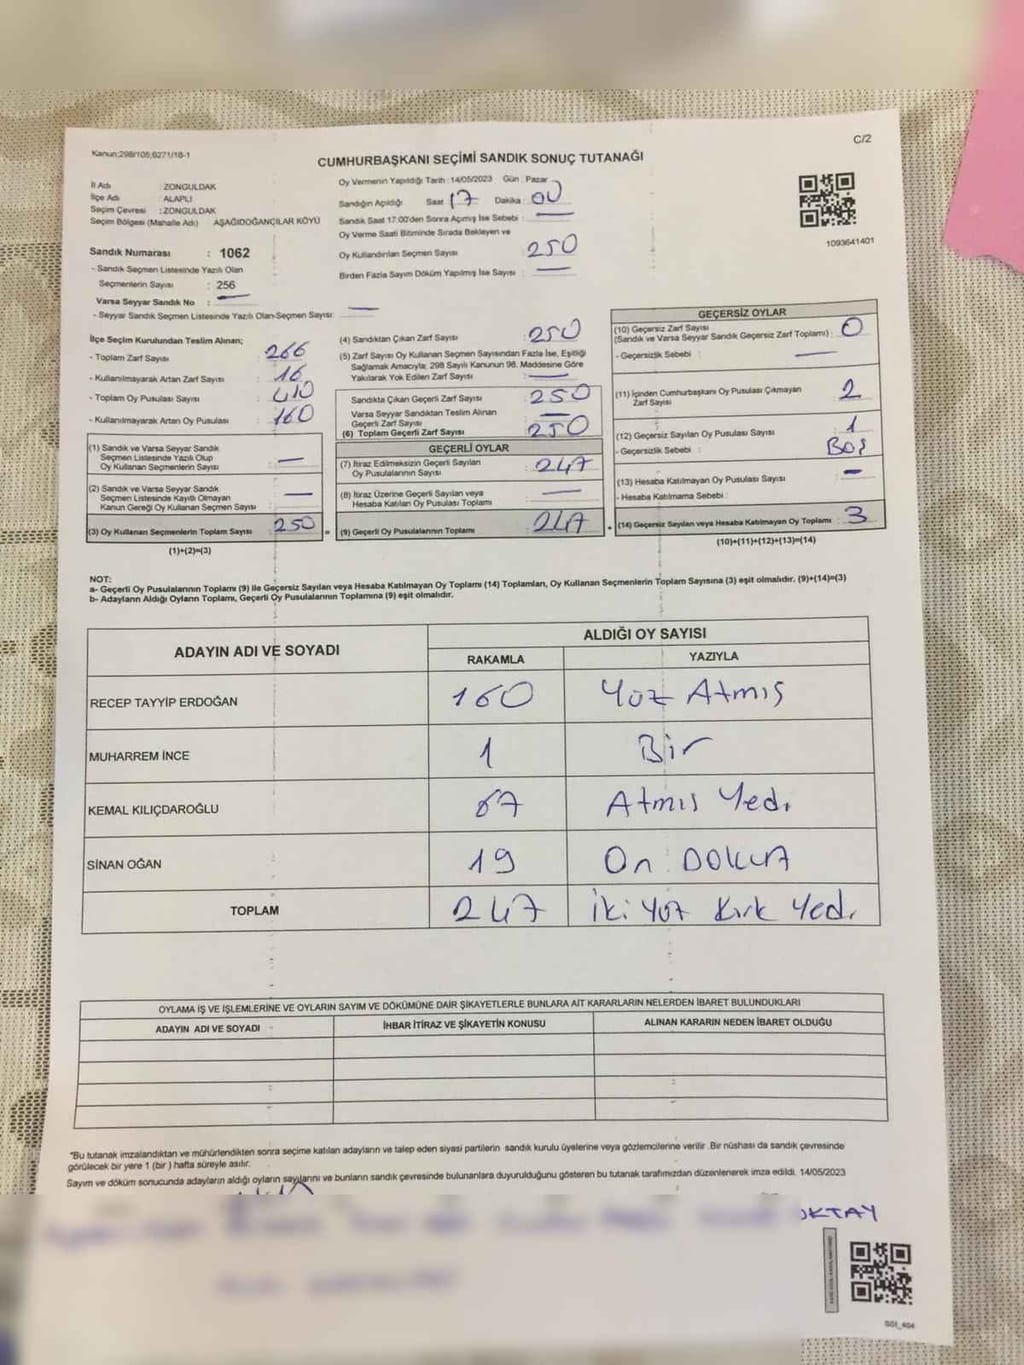 C/2
Kanun:298/105,6271/18-1
CUMHURBAŞKANI SEÇİMİ SANDIK SONUÇ TUTANAĞI
İl Adı : ZONGULDAK
İlçe Adı : ALAPLI
Seçim Çevresi : ZONGULDAK
Seçim Bölgesi (Mahalle Adı) AŞAĞIDOĞANCILAR KÖYÜ
Sandık Numarası : 1062
- Sandık Seçmen Listesinde Yazılı Olan
Seçmenlerin Sayısı : 256
Varsa Seyyar Sandık No : —
- Seyyar Sandık Seçmen Listesinde Yazılı Olan Seçmen Sayısı: —
Oy Vermenin Yapıldığı Tarih :14/05/2023 Gün : Pazar
Sandığın Açıldığı Saat 17 Dakika : 00
Sandık Saat 17:00'den Sonra Açımış İse Sebebi : —
Oy Verme Saati Bitiminde Sırada Bekleyen ve
Oy Kullandırılan Seçmen Sayısı : 250
Birden Fazla Sayım Döküm Yapılmış İse Sayısı : —
1093641401
İlçe Seçim Kurulundan Teslim Alınan;
- Toplam Zarf Sayısı : 266
- Kullanılmayarak Artan Zarf Sayısı : 16
- Toplam Oy Pusulası Sayısı : 410
- Kullanılmayarak Artan Oy Pusulası : 160
(1) Sandık ve Varsa Seyyar Sandık
Seçmen Listesinde Yazılı Olup
Oy Kullanan Seçmenlerin Sayısı : —
(2) Sandık ve Varsa Seyyar Sandık
Seçmen Listesinde Kayıtlı Olmayan
Kanun Gereği Oy Kullanan Seçmen Sayısı : —
(3) Oy Kullanan Seçmenlerin Toplam Sayısı : 250
(1)+(2)=(3)
(4) Sandıktan Çıkan Zarf Sayısı : 250
(5) Zarf Sayısı Oy Kullanan Seçmen Sayısından Fazla İse, Eşitliği
Sağlamak Amacıyla, 298 Sayılı Kanunun 98. Maddesine Göre
Yakılarak Yok Edilen Zarf Sayısı : —
Sandıkta Çıkan Geçerli Zarf Sayısı : 250
Varsa Seyyar Sandıktan Teslim Alınan
Geçerli Zarf Sayısı : —
(6) Toplam Geçerli Zarf Sayısı : 250
GEÇERLİ OYLAR
(7) İtiraz Edilmeksizin Geçerli Sayılan
Oy Pusulalarının Sayısı : 247
(8) İtiraz Üzerine Geçerli Sayılan veya
Hesaba Katılan Oy Pusulası Toplamı : —
= (9) Geçerli Oy Pusulalarının Toplamı : 247
GEÇERSİZ OYLAR
(10) Geçersiz Zarf Sayısı
(Sandık ve Varsa Seyyar Sandık Geçersiz Zarf Toplamı) : 0
- Geçersizlik Sebebi : —
(11) İçinden Cumhurbaşkanı Oy Pusulası Çıkmayan
Zarf Sayısı : 2
(12) Geçersiz Sayılan Oy Pusulası Sayısı : 1
- Geçersizlik Sebebi : Boş
(13) Hesaba Katılmayan Oy Pusulası Sayısı : —
- Hesaba Katılmama Sebebi :
+ (14) Geçersiz Sayılan veya Hesaba Katılmayan Oy Toplamı : 3
(10)+(11)+(12)+(13)=(14)
NOT:
a- Geçerli Oy Pusulalarının Toplamı (9) ile Geçersiz Sayılan veya Hesaba Katılmayan Oy Toplamı (14) Toplamları, Oy Kullanan Seçmenlerin Toplam Sayısına (3) eşit olmalıdır. (9)+(14)=(3)
b- Adayların Aldığı Oyların Toplamı, Geçerli Oy Pusulalarının Toplamına (9) eşit olmalıdır.
ADAYIN ADI VE SOYADI
ALDIĞI OY SAYISI
RAKAMLA YAZIYLA
RECEP TAYYİP ERDOĞAN 160 Yüz Atmış
MUHARREM İNCE 1 Bir
KEMAL KILIÇDAROĞLU 67 Atmış Yedi
SİNAN OĞAN 19 On DOKUZ
TOPLAM 247 İki Yüz Kırk Yedi
OYLAMA İŞ VE İŞLEMLERİNE VE OYLARIN SAYIM VE DÖKÜMÜNE DAİR ŞİKAYETLERLE BUNLARA AİT KARARLARIN NELERDEN İBARET BULUNDUKLARI
ADAYIN ADI VE SOYADI İHBAR İTİRAZ VE ŞİKAYETİN KONUSU ALINAN KARARIN NEDEN İBARET OLDUĞU
*Bu tutanak imzalandıktan ve mühürlendikten sonra seçime katılan adayların ve talep eden siyasi partilerin sandık kurulu üyelerine veya gözlemcilerine verilir .Bir nüshası da sandık çevresinde
görülecek bir yere 1 (bir ) hafta süreyle asılır.
Sayım ve döküm sonucunda adayların aldığı oyların sayılarını ve bunların sandık çevresinde bulunanlara duyurulduğunu gösteren bu tutanak tarafımızdan düzenlenerek imza edildi. 14/05/2023
OKTAY